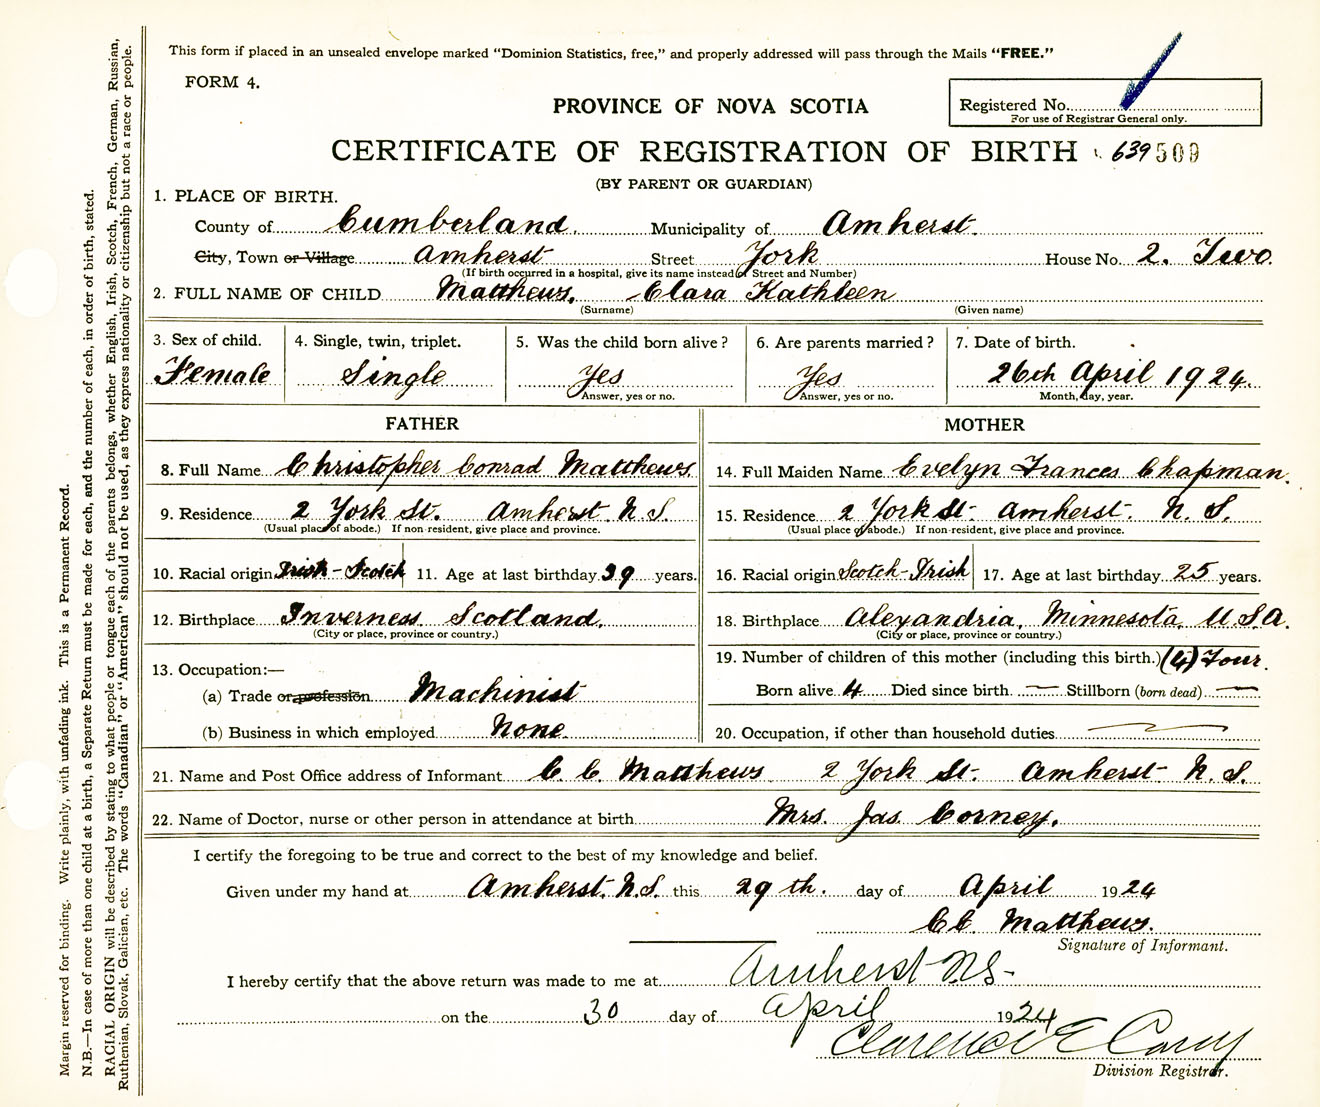 This form if placed in an unsealed envelope marked "Dominion Statistics, free," and properly addressed will pass through the Mails "FREE."
FORM 4.
PROVINCE OF NOVA SCOTIA
Registered No.
For use of Registrar General only.
CERTIFICATE OF REGISTRATION OF BIRTH 639 509
(BY PARENT OR GUARDIAN)
1. PLACE OF BIRTH.
County of Cumberland. Municipality of Amherst.
City, Town or Village Amherst Street York House No. 2. Two
(If birth occurred in a hospital, give its name instead of Street and Number)
2. FULL NAME OF CHILD Matthews, Clara Kathleen
(Surname) (Given name)
3. Sex of child. 4. Single, twin, triplet. 5. Was the child born alive? 6. Are parents married? 7. Date of birth.
Female Single Yes Yes 26th April 1924.
Answer, yes or no. Answer, yes or no. Month, day, year.
FATHER MOTHER
8. Full Name Christopher Conrad Matthews 14. Full Maiden Name Evelyn Frances Chapman.
9. Residence 2 York St. Amherst N.S. 15. Residence 2 York St. Amherst. N.S.
(Usual place of abode.) If non-resident, give place and province. (Usual place of abode.) If non-resident, give place and province.
10. Racial origin Irish-Scotch 11. Age at last birthday 39 years. 16. Racial origin Scotch-Irish 17. Age at last birthday 25 years.
12. Birthplace Inverness Scotland. 18. Birthplace Alexandria, Minnesota, U.S.A.
(City or place, province or country.) (City or place, province or country.)
13. Occupation:— 19. Number of children of this mother (including this birth.) (4) Four.
(a) Trade or profession Machinist Born alive 4 Died since birth — Stillborn (born dead) —
(b) Business in which employed None. 20. Occupation, if other than household duties
21. Name and Post Office address of Informant C. C. Matthews 2 York St. Amherst N.S.
22. Name of Doctor, nurse or other person in attendance at birth Mrs. Jas. Corney.
I certify the foregoing to be true and correct to the best of my knowledge and belief.
Given under my hand at Amherst, N.S. this 29th. day of April 1924
C C. Matthews.
Signature of Informant.
I hereby certify that the above return was made to me at Amherst N.S-
on the 30 day of April 1924
Clarence E
Division Registrar.
Margin reserved for binding. Write plainly, with unfading ink. This is a Permanent Record.
N.B.—In case of more than one child at a birth, a Separate Return must be made for each, and the number of each, in order of birth, stated.
RACIAL ORIGIN will be described by stating to what people or tongue each of the parents belongs, whether English, Irish, Scotch, French, German, Russian,
Ruthenian, Slovak, Galician, etc. The words "Canadian" or "American" should not be used, as they express nationality or citizenship but not a race or people.